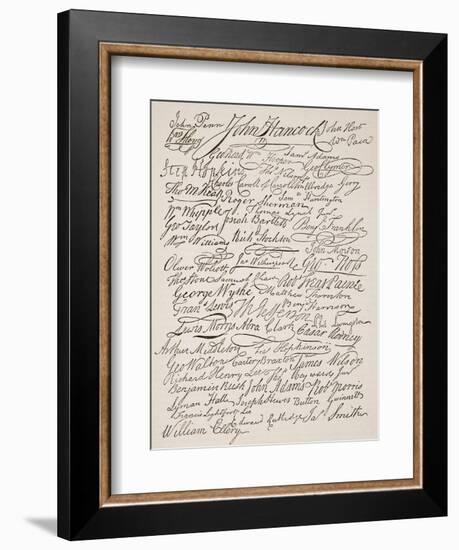 John Penn John Hancock John Hart
Wm Paca
Wm Hooper Saml Adams
Step Hopkins Thos Nelson Geo Clymer
Tho M:Kean Charles Carroll of Carrollton Elbridge Gerry
Roger Sherman Saml Huntington
Wm Whipple Thomas Lynch Junr
Geo Taylor Josiah Bartlett Benj Franklin
Wm Williams Richd Stockton John Morton
Oliver Wolcott Jno Witherspoon Geo Ross
Tho Stone Samuel Chase Robt Treat Paine
George Wythe Matthew Thornton
Frans Lewis Th Jefferson Benj Harrison
Lewis Morris Abra Clark Phil Livingston Cæsar Rodney
Arthur Middleton Fras Hopkinson
Geo Walton Carter Braxton James Wilson
Richard Henry Lee Thos Heyward Junr
Benjamin Rush John Adams Robt Morris
Lyman Hall Joseph Hewes Button Gwinnett
Francis Lightfoot Lee
William Ellery Edward Rutledge Jas Smith